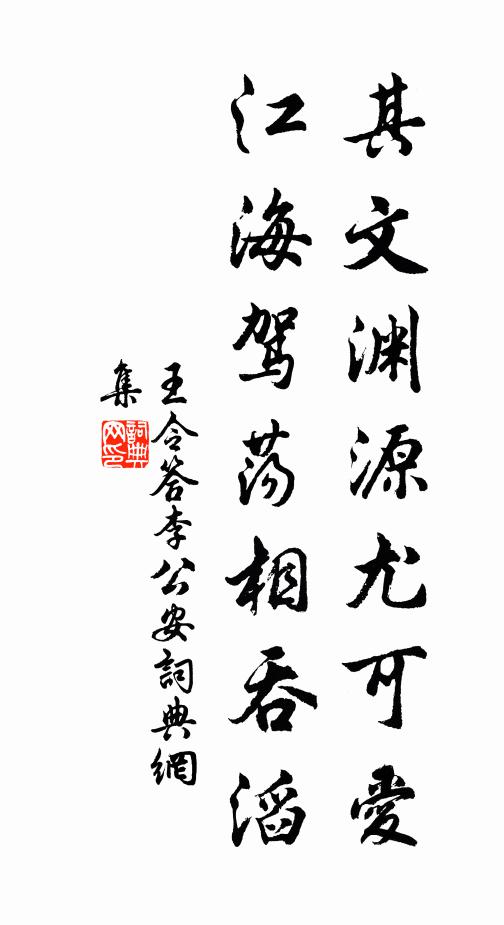 其文渊源尤可愛
江海驾荡相吞滔
王令答李公安詞典網
集
詞典网印